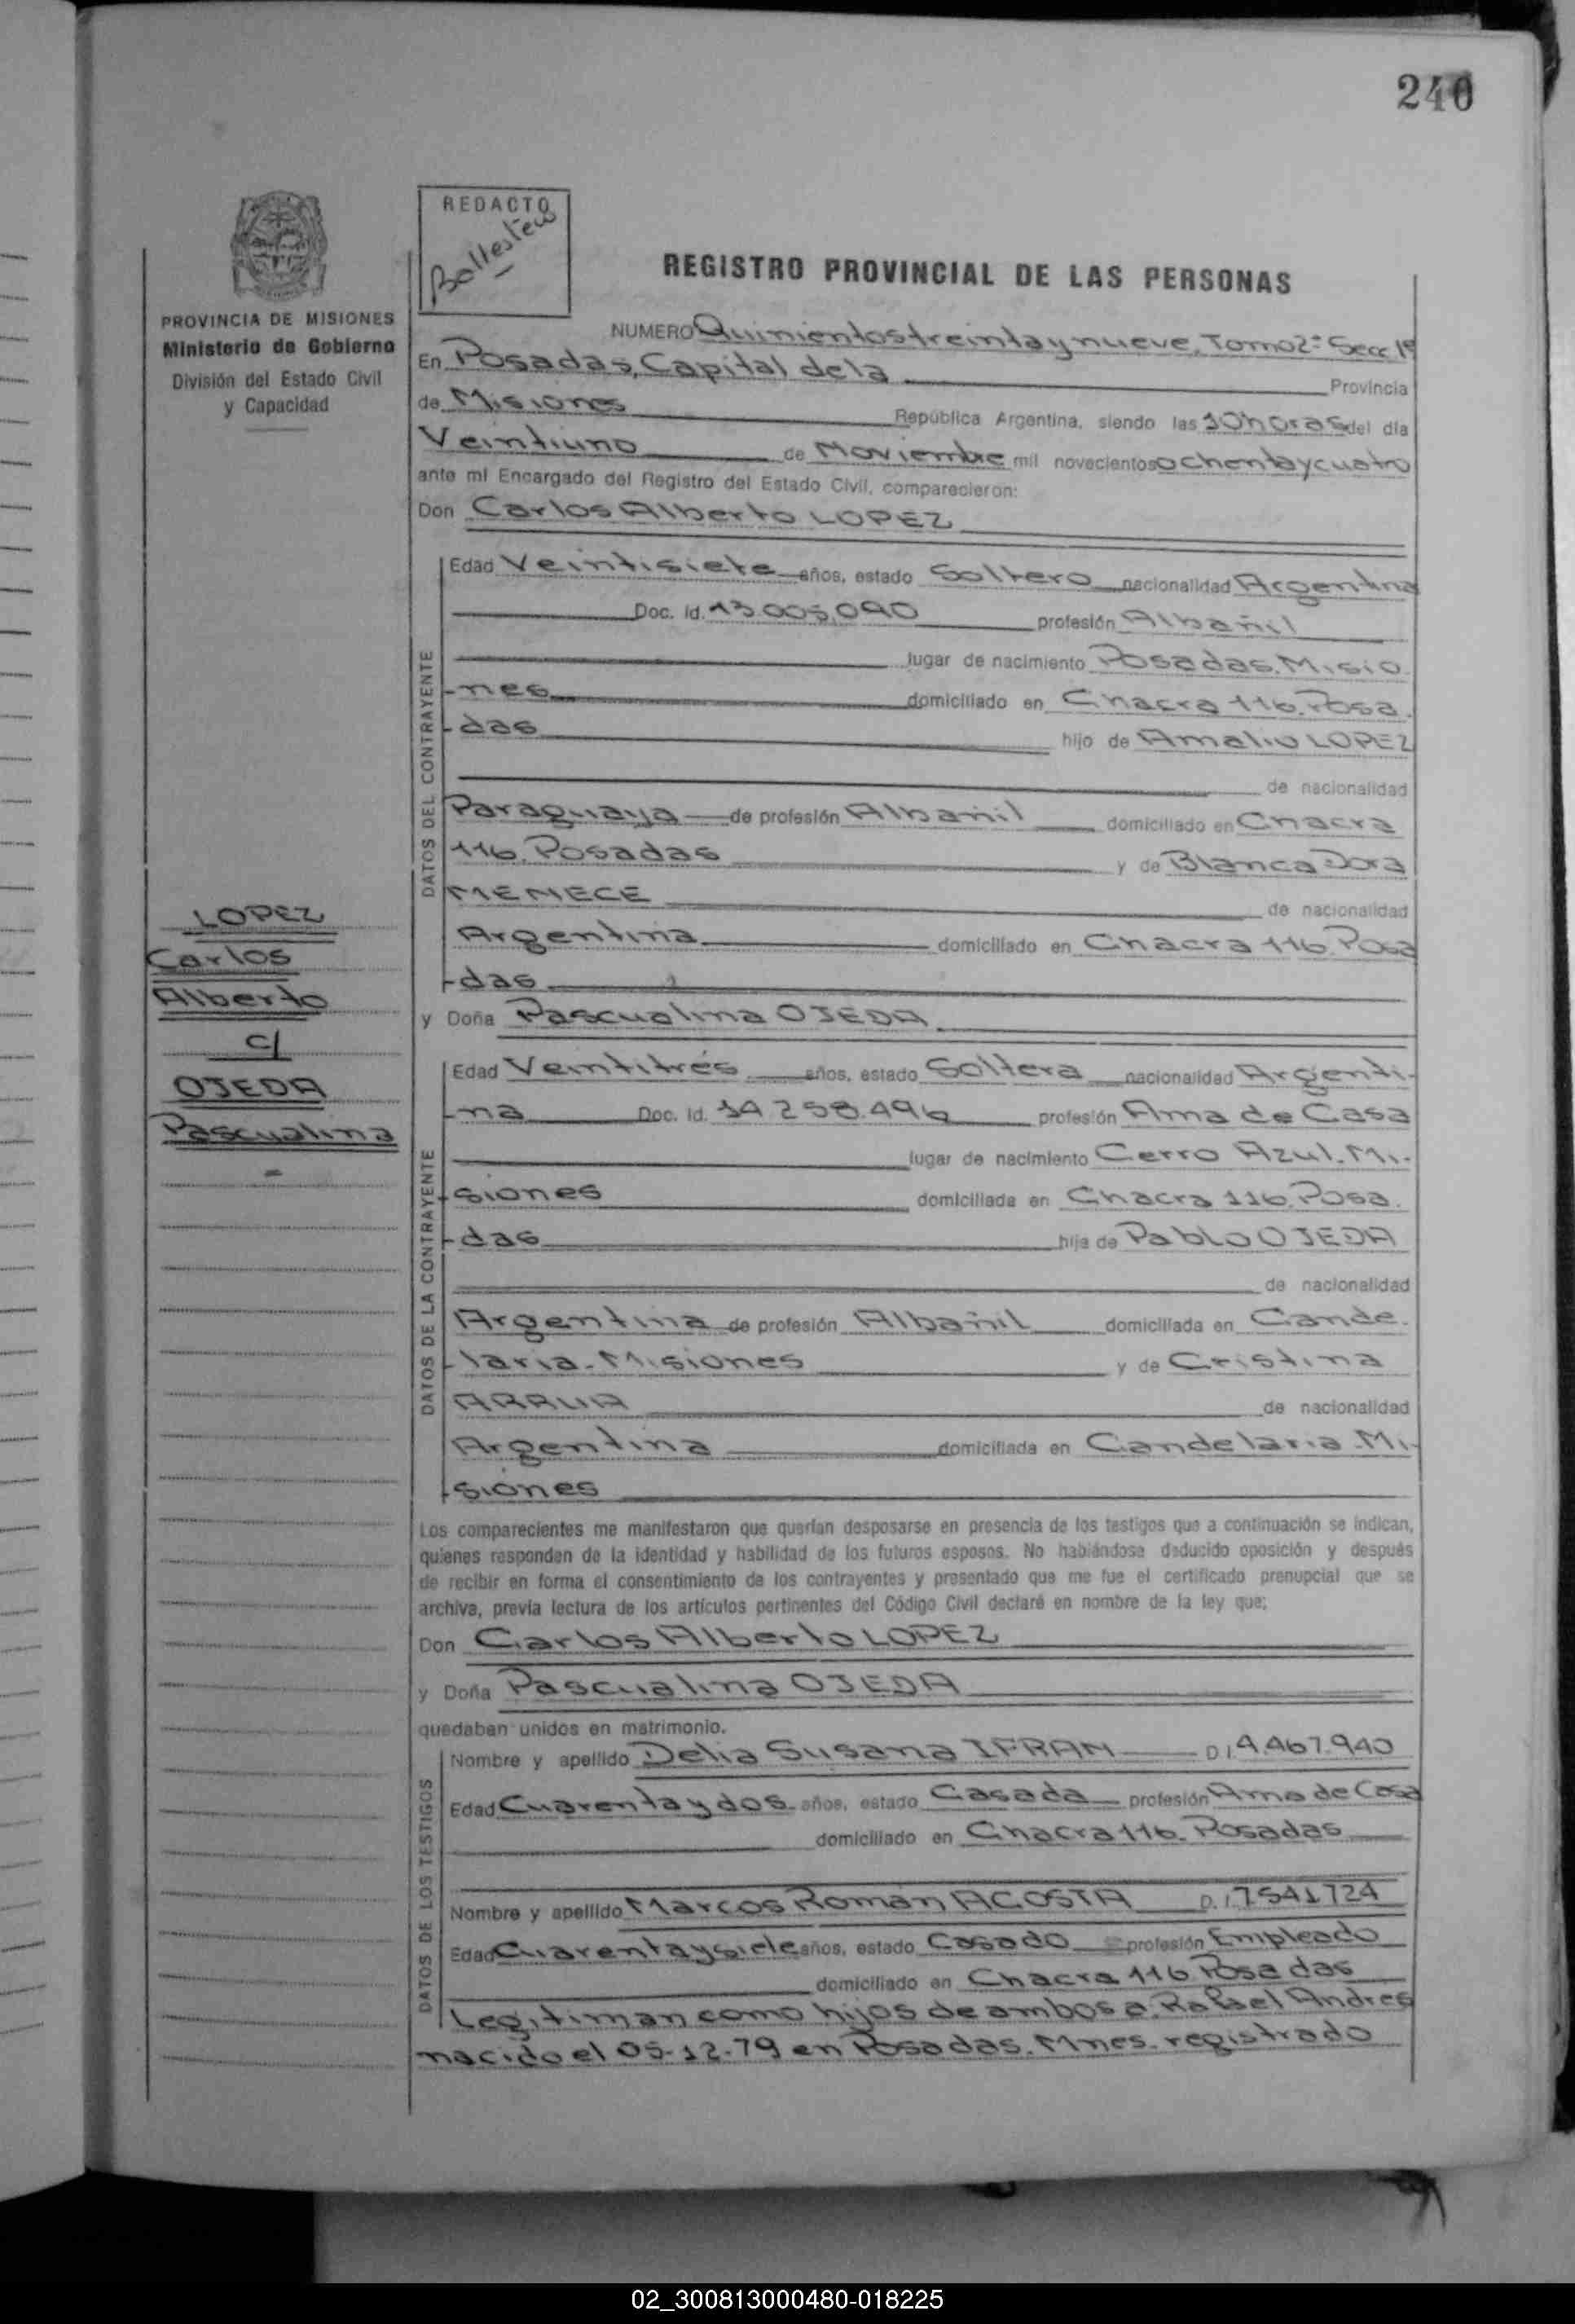 240
REDACTO
Ballestero
REGISTRO PROVINCIAL DE LAS PERSONAS
PROVINCIA DE MISIONES
Ministerio de Gobierno
División del Estado Civil
y Capacidad
NUMERO Quinientos treinta y nueve. Tomo 2º Secc 1ª
En Posadas, Capital de la Provincia
de Misiones República Argentina, siendo las 10 horas del día
Veintiuno de Noviembre mil novecientos ochenta y cuatro
ante mí Encargado del Registro del Estado Civil, comparecieron:
Don Carlos Alberto LOPEZ
DATOS DEL CONTRAYENTE
Edad Veintisiete años, estado Soltero nacionalidad Argentina
Doc. Id. 13.005.090 profesión Albañil
lugar de nacimiento Posadas. Misio
-nes domiciliado en Chacra 116. Posa.
-das hijo de Amalio LOPEZ
de nacionalidad
Paraguaya de profesión Albañil domiciliado en Chacra
116. Posadas y de Blanca Dora
MENECE de nacionalidad
Argentina domiciliado en Chacra 116. Posa
-das
LOPEZ
Carlos
Alberto
c/
OJEDA
Pascualina
-
y Doña Pascualina OJEDA
DATOS DE LA CONTRAYENTE
Edad Veintitrés años, estado Soltera nacionalidad Argenti-
-na Doc. Id. 14.258.496 profesión Ama de Casa
lugar de nacimiento Cerro Azul. Mi-
siones domiciliada en Chacra 116. Posa.
-das hija de Pablo OJEDA
de nacionalidad
Argentina de profesión Albañil domiciliada en Cande.
-laria - Misiones y de Cristina
ARRUA de nacionalidad
Argentina domiciliada en Candelaria. Mi-
-siones
Los comparecientes me manifestaron que querían desposarse en presencia de los testigos que a continuación se indican,
quienes responden de la identidad y habilidad de los futuros esposos. No habiéndose deducido oposición y después
de recibir en forma el consentimiento de los contrayentes y presentado que me fue el certificado prenupcial que se
archiva, previa lectura de los artículos pertinentes del Código Civil declaré en nombre de la ley que;
Don Carlos Alberto LOPEZ
y Doña Pascualina OJEDA
quedaban unidos en matrimonio.
DATOS DE LOS TESTIGOS
Nombre y apellido Delia Susana IFRAN D.I. 4.467.940
Edad Cuarenta y dos años, estado Casada profesión Ama de Casa
domiciliado en Chacra 116. Posadas
Nombre y apellido Marcos Román ACOSTA D.I. 7541724
Edad Cuarenta y siete años, estado Casado profesión Empleado
domiciliado en Chacra 116 Posadas
Legitiman como hijos de ambos a: Rafael Andres
nacido el 05-12-79 en Posadas. Mnes. registrado
02_300813000480-018225